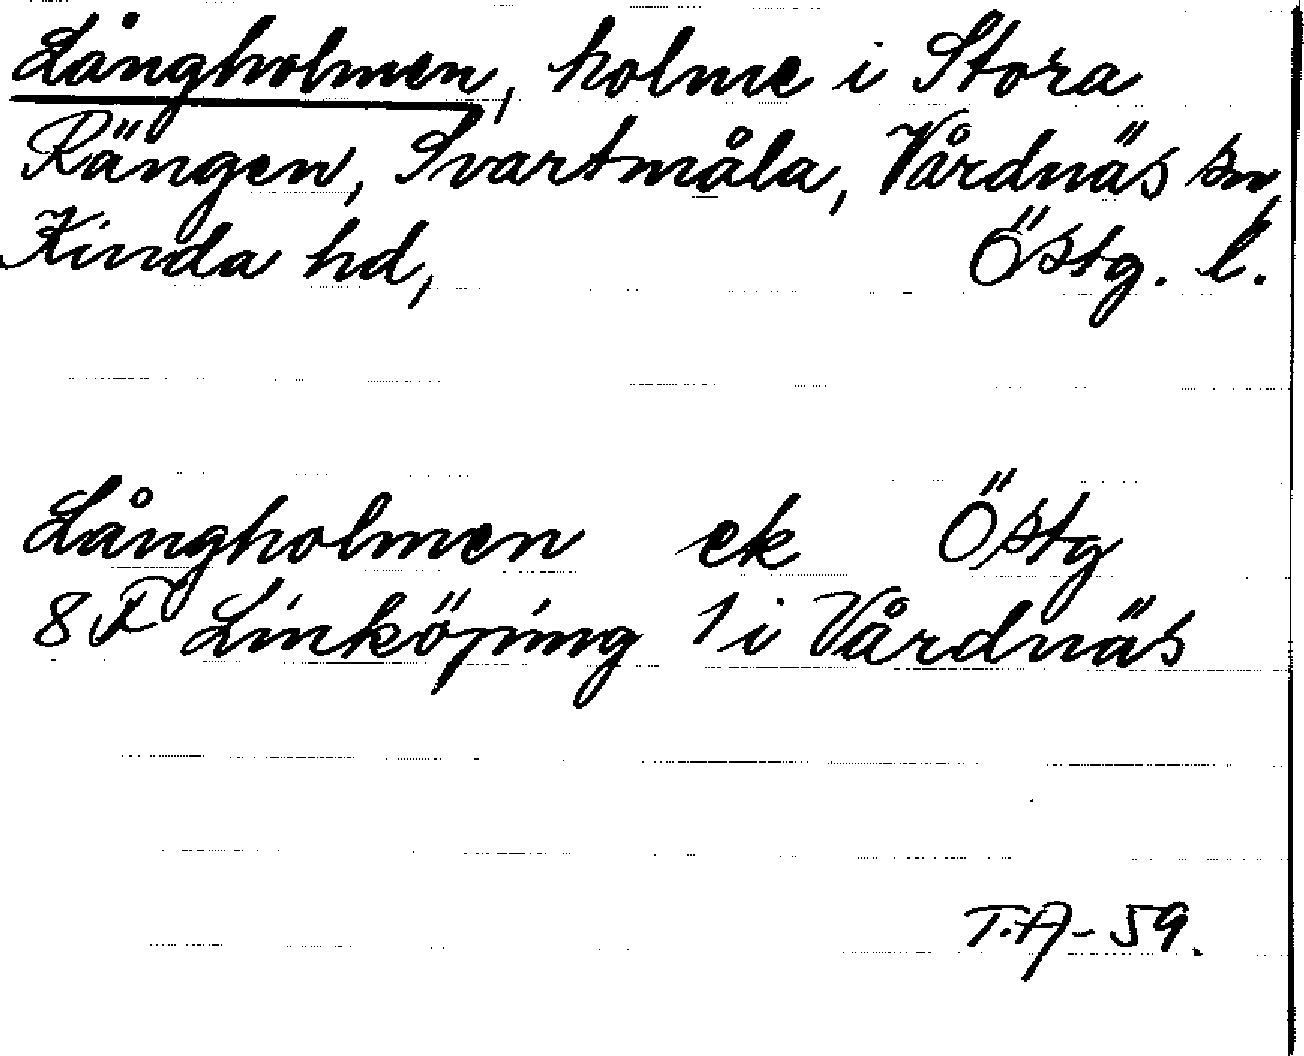 Långholmen, holme i Stora
Rängen, Svartmåla, Vårdnäs sn,
Kinda hd, Östg. l.
Långholmen ek Östg
8 F Linköping 1 i Vårdnäs
T.A-59.